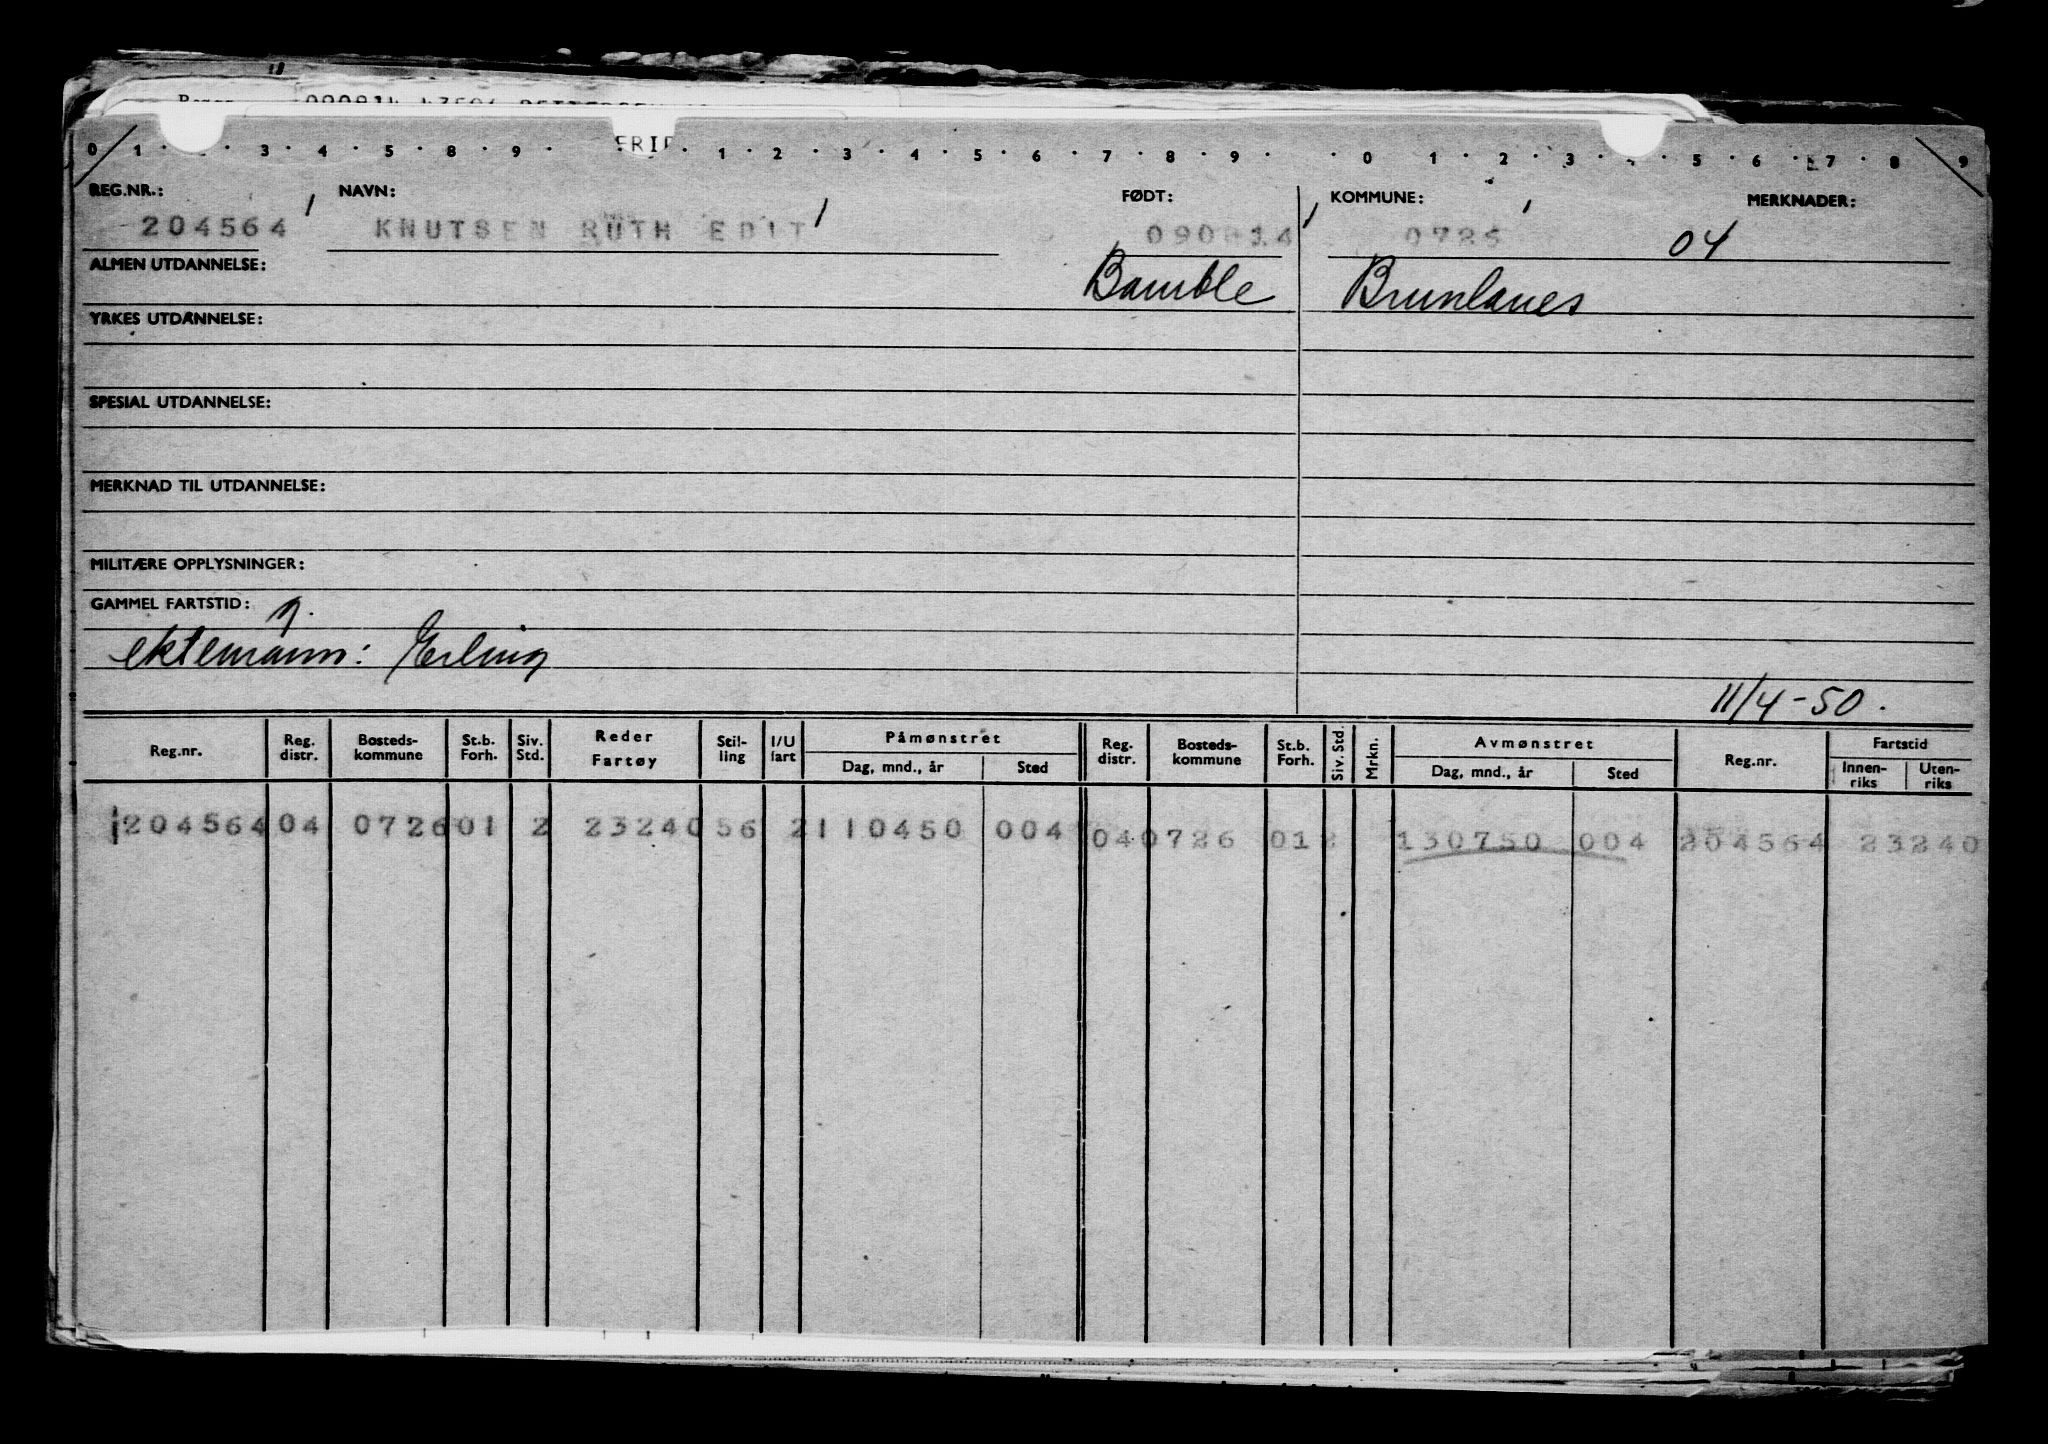 090814
ERI
0 1 3 4 5 8 9 1 2 3 4 5 6 7 8 9 0 1 2 3 5 6 7 8 9
REG.NR.: NAVN: FØDT: KOMMUNE: MERKNADER:
204564 KNUTSEN RUTH EDIT 090814 04
ALMEN UTDANNELSE: Bamble Brunlanes
YRKES UTDANNELSE:
SPESIAL UTDANNELSE:
MERKNAD TIL UTDANNELSE:
MILITÆRE OPPLYSNINGER:
GAMMEL FARTSTID:
ektemann: Erling
11/4-50.
Reg.nr. Reg. distr. Bosteds-kommune St.b. Forh. Siv. Std. Reder Fartøy Stil-ling I/U fart Påmønstret Dag, mnd., år Sted Reg. distr. Bosteds-kommune St.b. Forh. Siv. Std. Mrkn. Avmønstret Dag, mnd., år Sted Reg.nr. Fartstid Innen-riks Uten-riks
204564 04 0726 01 2 23240 56 2 110450 004 04 0726 01 2 130750 004 204564 23240